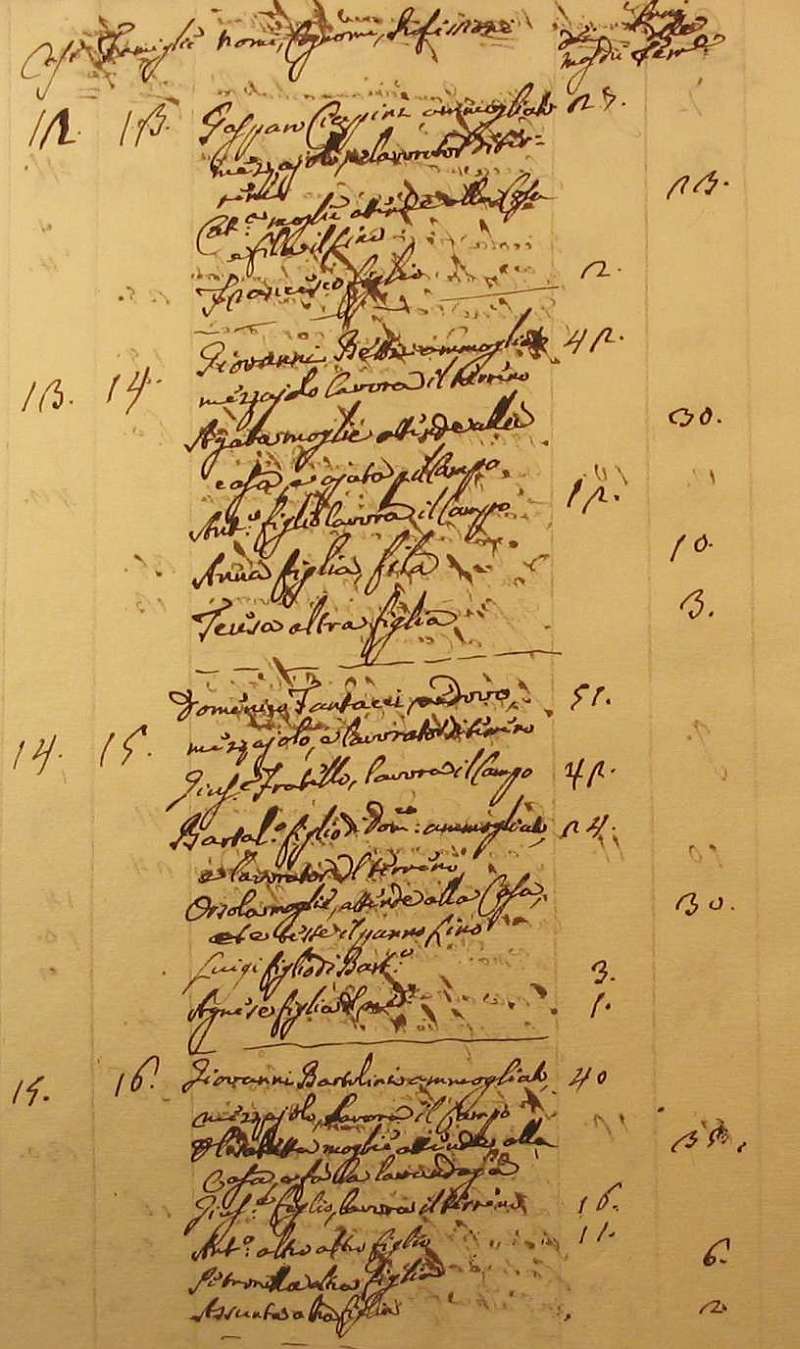 Case Famiglie Nomi, Cognomi, Professioni Anni
de de
maschi Fem.e
12. 13. Gasparo Ciapini ammogliato 25.
mezzajolo, e lavorator di ter=
reno
Cat.a moglie attende alla Casa 23.
e fila il lino
Francesco figlio 2.
13. 14. Giovanni Betti ammogliato 42.
mezzajolo lavora il terreno
Agata moglie attende alla 30.
casa, e ajuta pel Campo
Ant.o figlio lavora il Campo 12.
Anna figlia, fila 10.
Teresa altra figlia 3.
14. 15. Domenico Fantacci, vedovo, 51.
mezzajolo, e lavorator di terreno
Gius.e Fratello, lavora il Campo 42.
Bartol.o figlio di Dom.co ammogliato, 24.
e lavorator del terreno
Orsola moglie, attende alla Casa, 30.
e tesse il panno lino
Luigi figlio di Bart.o 3.
Agnese figlia del med.o 1.
15. 16. Giovanni Bartolini ammogliato, 40
mezzajolo, lavora il Campo
Elisabetta moglie attende alla
Casa, e fa la lavandaja
Gius.e figlio, lavora il terreno 16.
Ant.o altro altro figlio 11.
Petronilla altra figlia 6.
Assunta altra figlia 2.